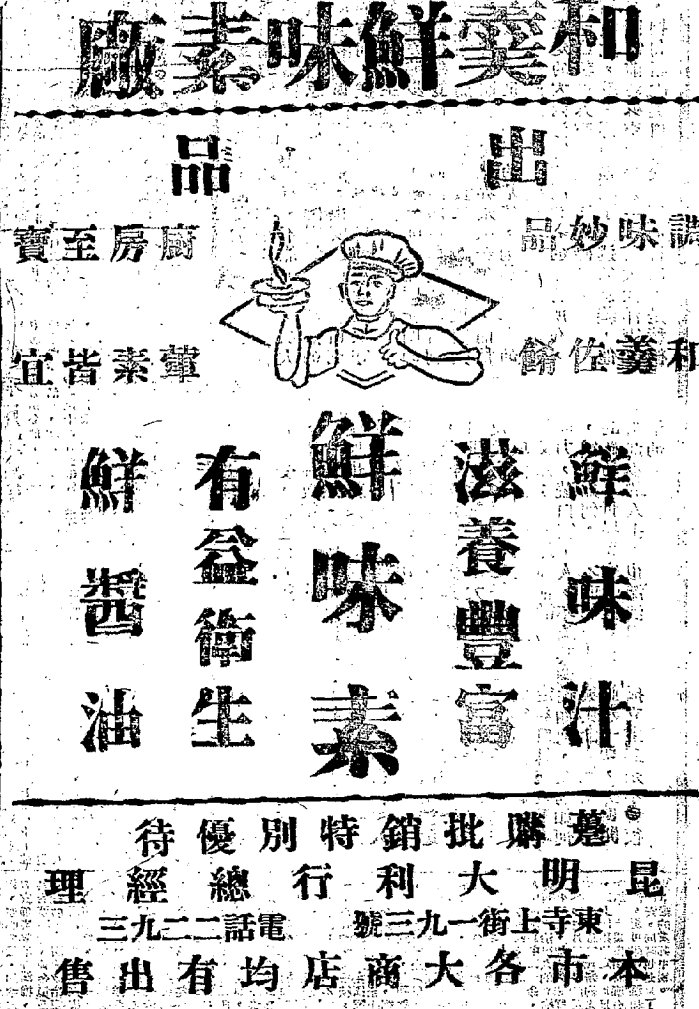 和羹鮮味素廠
出品
調味妙品
廚房至寶
和羹佐餚
葷素皆宜
鮮味汁
滋養豐富
鮮味素
有益衛生
鮮醬油
躉購批銷特別優待
昆明大利行總經理
東寺上街一九三號 電話二二九三
本市各大商店均有出售